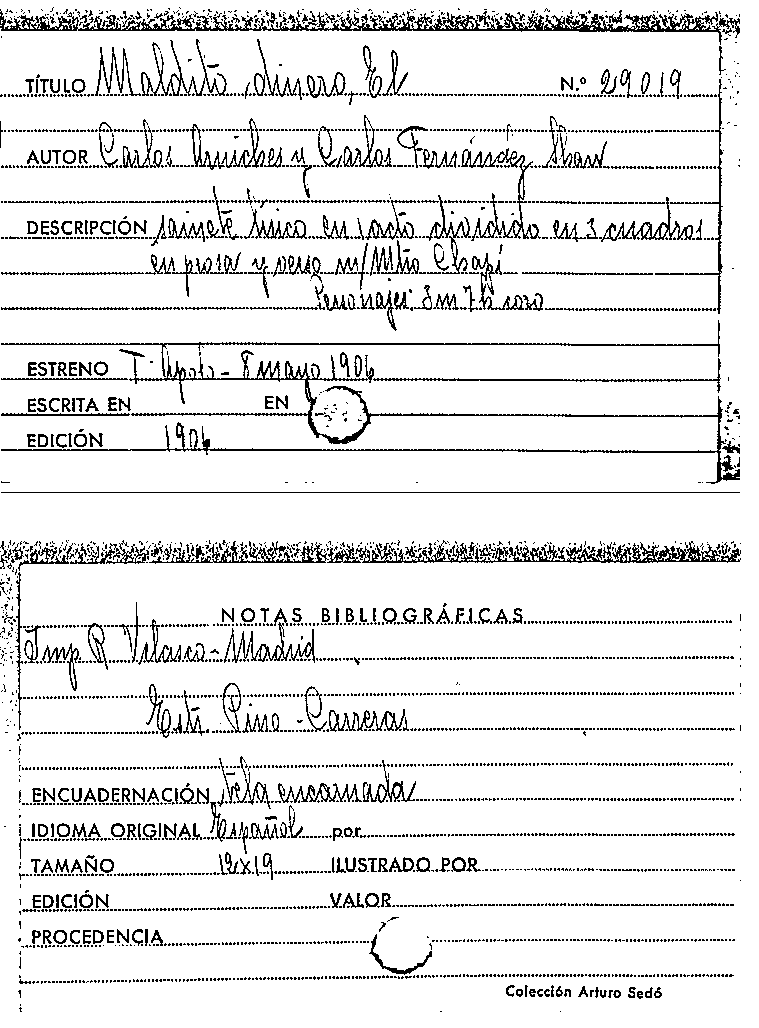 TÍTULO Maldito dinero, El N.º 29019
AUTOR Carlos Arniches y Carlos Fernández Shaw
DESCRIPCIÓN sainete lírico en 1 acto dividido en 3 cuadros
en prosa y verso m/ Mtro Chapí
Personajes: 3m 7h coro
ESTRENO T. Apolo - 8 mayo 1906
ESCRITA EN EN
EDICIÓN 1906
NOTAS BIBLIOGRÁFICAS
Imp R Velasco - Madrid
Estr. Pino - Carreras
ENCUADERNACIÓN tela encarnada
IDIOMA ORIGINAL Español por
TAMAÑO 12x19 ILUSTRADO POR
EDICIÓN VALOR
PROCEDENCIA
Colección Arturo Sedó